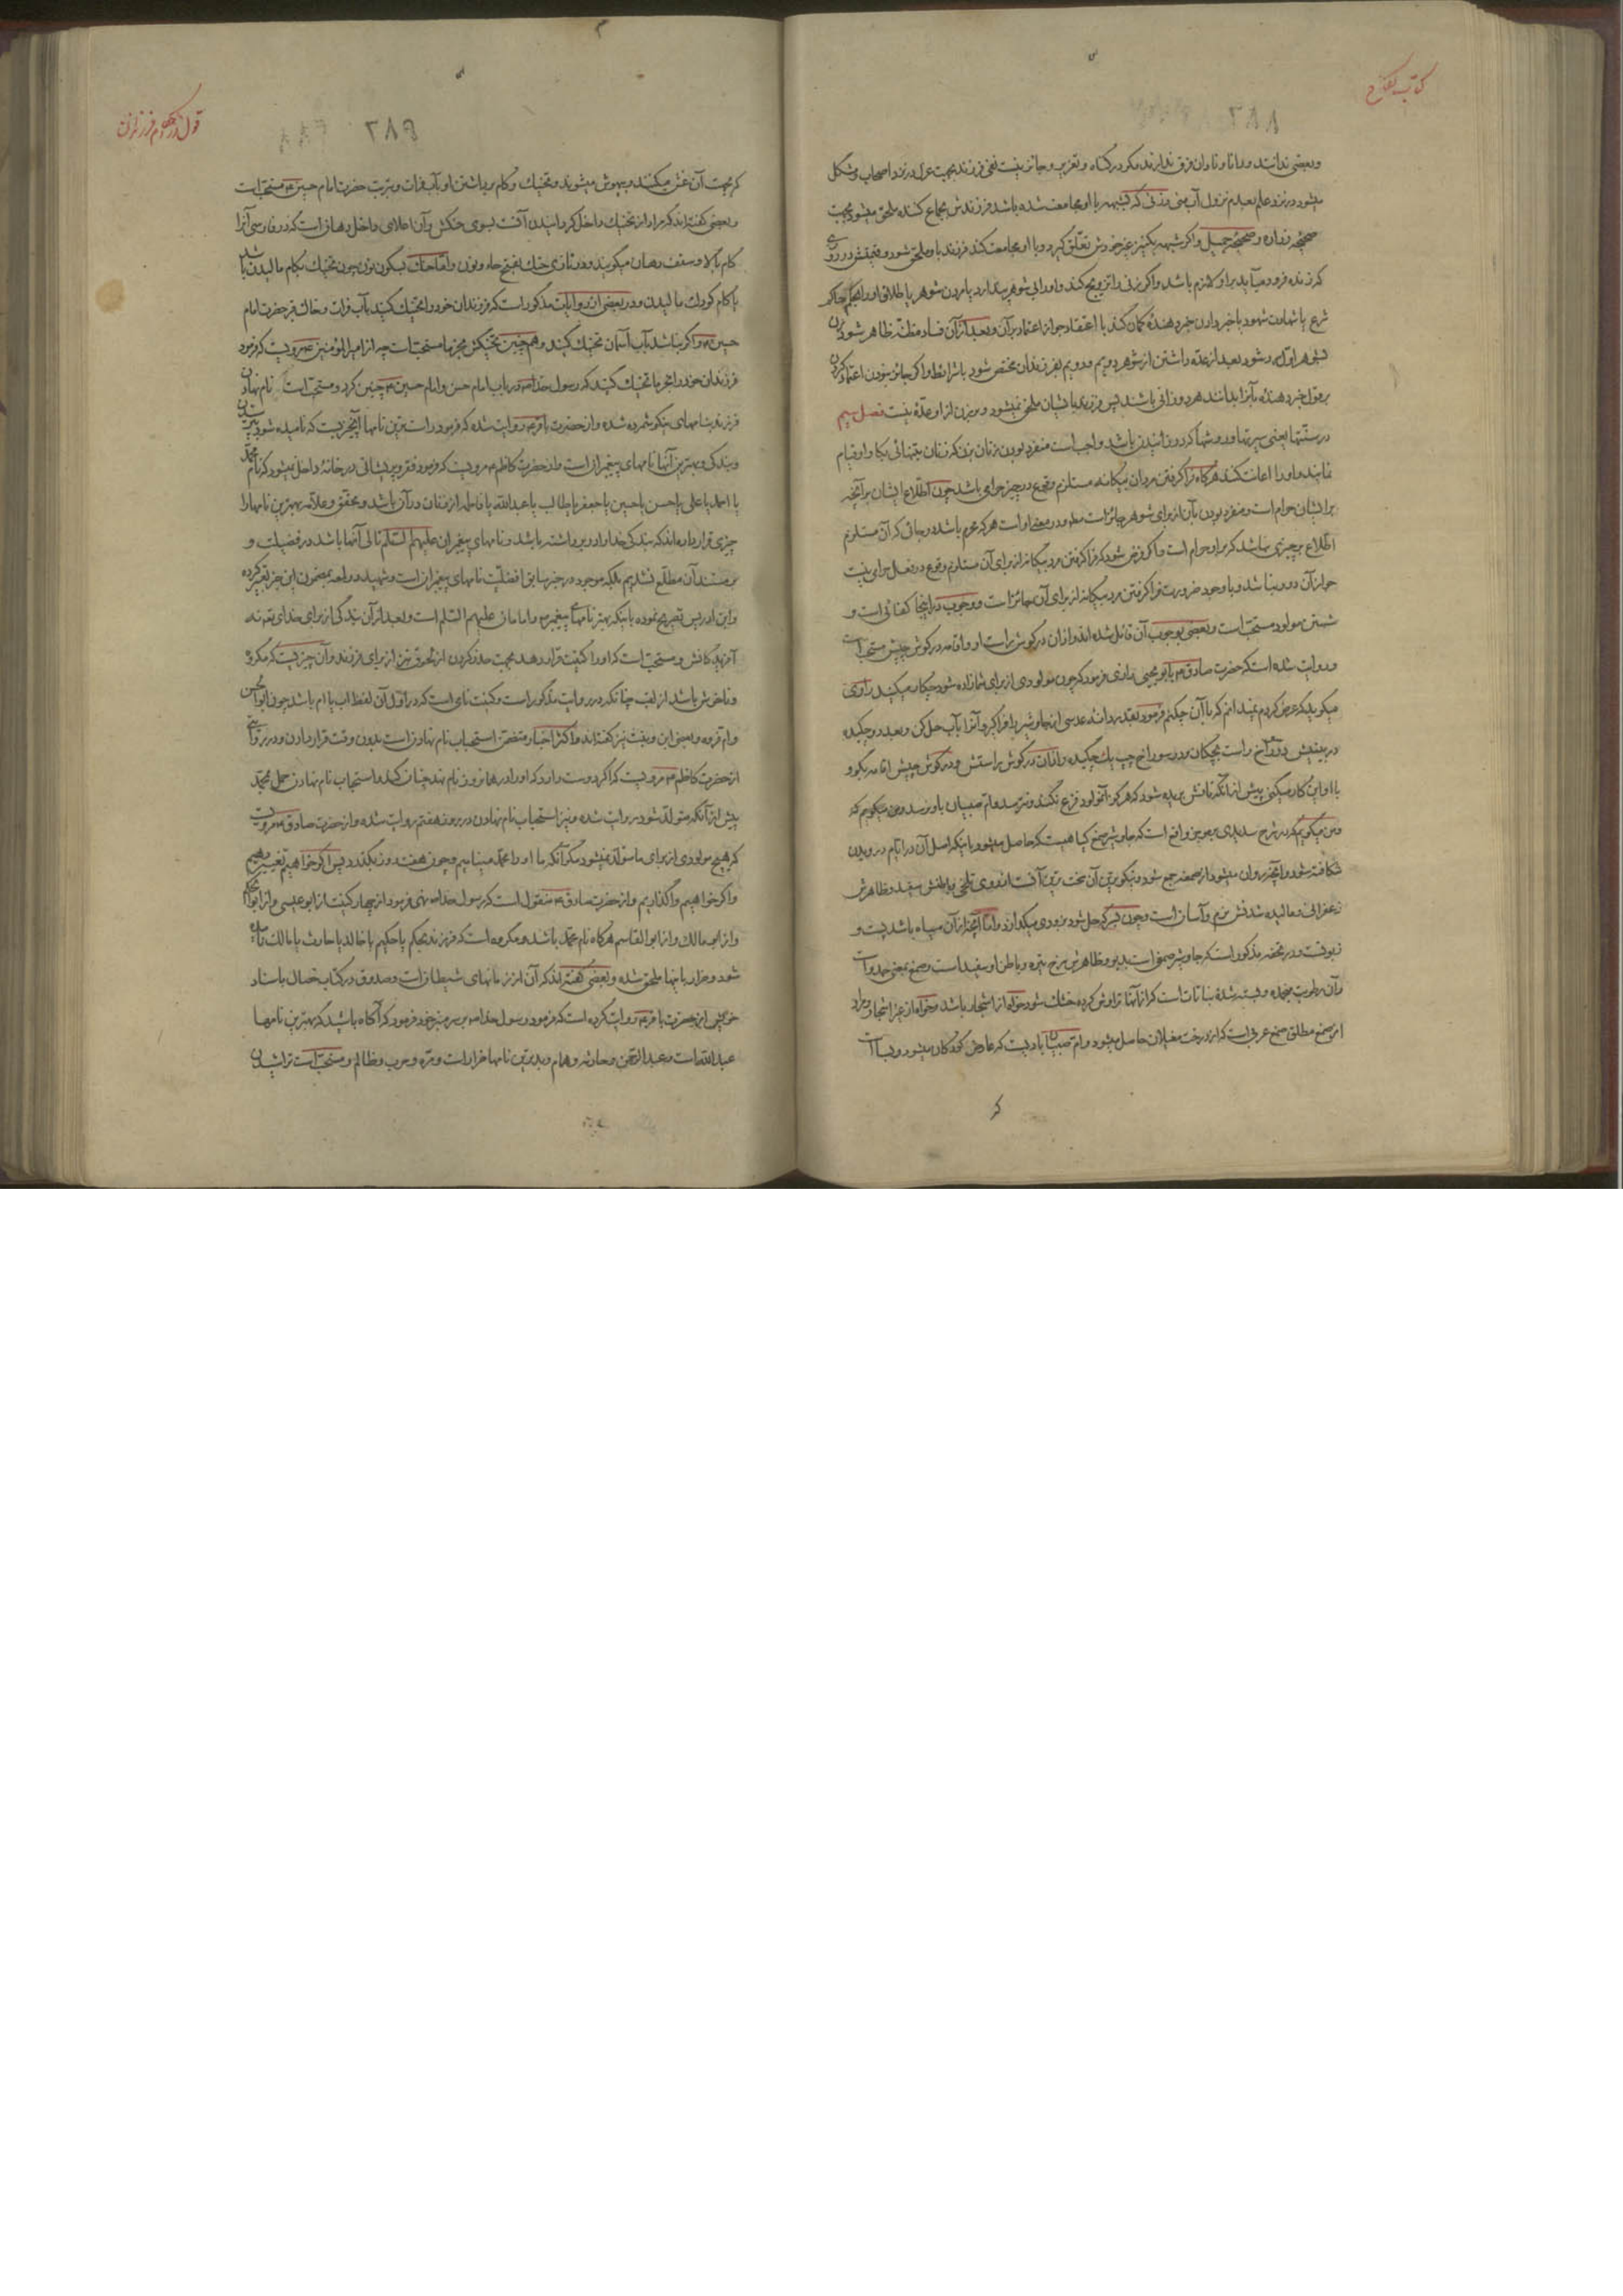 کتاب نکاح
۲۸۸
و بعضی ندانند و دانا و نادان فرق ندارند مگر در گناه و تعزیر و جائز نیست نفی فرزند بجهت عزل در نزد اصحاب و مشکل
میشود در نزد علم بعدم نزول آب منی و زنی که بشبهه با او مجامعت شده باشد فرزندش بجماع کننده ملحق میشود بجهت
صحیحه زراره و صحیحه جمیل و اگر شبهه بکنیز غیر خودش تعلق گیرد و با او مجامعت کند فرزند باو ملحق شود و قیمتش در روزی
که زنده فرود میآید بر او لازم باشد و اگر زنی را تزویج کند و او را بی شوهر پندارد یا مردن شوهر یا طلاق او را بحکم حاکم
شرع یا شهادت شهود یا خبر دادن خبر دهنده گمان کند با اعتقاد جواز اعتماد بر آن و بعد از آن فساد مظنه ظاهر شود زن
بشوهر اول رد شود بعد از عده داشتن از شوهر دویم و دویم بفرزندان مختص شود با شرایط و اگر جائز نبودن اعتماد کردن
بر قول خبر دهنده را بدانند هر دو زانی باشند پس فرزند بایشان ملحق نمیشود و بر زن از او عده نیست فصل سیم
در سنتها یعنی سیرتها و روشها در زائیدن باشد واجب است منفرد بودن زنان بزن که زنان بتنهائی بکار او قیام
نمایند و او را اعانت کنند هرگاه فرا گرفتن مردان بیگانه مستلزم وقوع در چیز حرامی باشد چون اطلاع ایشان بر آنچه
بر ایشان حرام است و منفرد بودن بآن از برای شوهر جائز است و در معنی او است هر که محرم باشد در جائی که آن مستلزم
اطلاع بر چیزی نباشد که بر او حرام است و اگر فرض شود که فرا گرفتن مرد بیگانه از برای آن مستلزم وقوع در فعل حرامی نیست
جواز آن دور نباشد و با وجود ضرورت فرا گرفتن مرد بیگانه از برای آن جائز است و وجوب در اینجا کفائی است و
شستن مولود مستحب است و بعضی بوجوب آن قائل شده‌اند و اذان در گوش راست او و اقامه در گوش چپش مستحب است
و روایت شده است که حضرت صادق ع بابو یحیی رازی فرمود که چون مولودی از برای شما زاده شود چکار میکنید راوی
میگوید که عرض کردم نمیدانم که با آن چکنم فرمود بقدر دانه عدسی از جاوشیر را فرا گیر و آنرا بآب حل کن و بعد دو چکیده
در بینیش در سوراخ راست بچکان و در سوراخ چپ یک چکیده و اذان در گوش راستش و در گوش چپش اقامه بگو و
با او این کار میکنی پیش از آنکه نافش بریده شود که هرگز آنمولود فزع نکند و نترسد و ام صبیان باو نرسد و من میگویم که
و من میگویم که در شرح سدیدی بموجز واقع است که جاوشیر صمغ گیاهیست که حاصل میشود باینکه اصل آن در ایام درویدن
شکافته شود و آنچه روان میشود از صمغ جمع شود و نیکوترین آن سخت‌ترین آنست از روی تلخی و باطنش سفید و ظاهرش
زعفرانی و مالیده شدنش نرم و آسان است و چون در شیر حل شود بزودی میگدازد و اما آنچه از آن سیاه باشد پست و
زبونست و در مختصر مذکور است که جاوشیر صمغی است بدبو و ظاهرش سرخ تیره و باطن او سفید است و صمغ بمعنی
و آن رطوبت منجمده و بسته شده نباتات است که از آنها تراوش کرده خشک شود خواه از اشجار باشد و خواه از غیر اشجار و مراد
از صمغ مطلق صمغ عربی است که از درخت مغیلان حاصل میشود و ام صبیان بادیست که عارض کودکان میشود و بسا است
که
قول در احکام فرزندان
۲۸۹
که بجهت آن غش میکنند و بیهوش میشوند و تحنیک و کام برداشتن او بآب فرات و تربت حضرت امام حسین ع مستحب است
و بعضی گفته‌اند که مراد از تحنیک داخل گردانیدن آنست بسوی حنکش و آن اعلای داخل دهان است که در فارسی آنرا
کام بالا و سقف دهان میگویند و در تازی حنک بفتح حاء و نون و اما حنک بسکون نون چون تحنیک بکام مالیدن باشد
یا کام کودک مالیدن و در بعضی از روایات مذکور است که فرزندان خود را تحنیک کنید بآب فرات و خاک قبر حضرت امام
حسین ع و اگر نباشد بآب آسمان تحنیک کنید و هم چنین تحنیکش بخرما مستحب است چه از امیر المؤمنین ع مرویست که فرمود
فرزندان خود را بخرما تحنیک کنید که رسول خدا ص در باب امام حسن و امام حسین ع چنین کرد و مستحب است نام نهادن
فرزند بنامهای نیکو شمرده شده و از حضرت باقر ع روایت شده که فرمود راست‌ترین نامها آنچیزیست که نامیده شود
ببندگی و بهترین آنها نامهای پیغمبران است و از حضرت کاظم ع مرویست که فرمود فقر و پریشانی در خانه داخل نمیشود که نام محمد
یا احمد یا علی یا حسن یا حسین یا جعفر یا طالب یا عبدالله یا فاطمه از زنان در آن باشد و محقق و علامه بهترین نامها را
چیزی قرار داده‌اند که بندگی خدا را در بر داشته باشد و نامهای پیغمبران علیهم السلام تالی آنها باشد در فضیلت و
بر مستند آن مطلع نشدیم بلکه موجود در خبر سابق افضلیت نامهای پیغمبران است و شهید در لمعه بمضمون این خبر تعبیر کرده
و ابن ادریس تصریح نموده باینکه بهتر نامها نامهای پیغمبر ص و امامان علیهم السلام است و بعد از آن بندگی از برای خدای نه
آفریدگانش و مستحب است که او را کنیت قرار دهد بجهت حذر کردن از لحوق نبز از برای فرزند و آن چیزیست که مکروه
و ناخوش باشد از لقب چنانکه در روایت مذکور است و کنیت نامی است که در اول آن لفظ اب یا ام باشد چون ابو الحسن
و ام فروه و بعضی ابن و بنت نیز گفته‌اند و اکثر اخبار متضمن استحباب نام نهادن است بدون وقت قرار دادن و در روایتی
از حضرت کاظم ع مرویست که اگر دوست دارد که او را در همانروز نام نهد چنان کند و استحباب نام نهادن حمل بمحمد
پیش از آنکه متولد شود روایت شده و نیز استحباب نام نهادن در روز هفتم روایت شده و از حضرت صادق ع مرویست
که هیچ مولودی از برای ما متولد نمیشود مگر آنکه ما او را محمد مینامیم و چون هفت روز بگذرد پس اگر خواهیم تغییر دهیم
و اگر خواهیم واگذاریم و از حضرت صادق ع منقول است که رسول خدا ص نهی فرمود از چهار کنیت از ابو عیسی و از ابو الحکم
و از ابو مالک و از ابو القاسم هرگاه نام محمد باشد و مکروه است که فرزند بحکم یا حکیم یا خالد یا حارث یا مالک نامیده
شود و ضرار باینها ملحق شده و بعضی گفته‌اند که آن از نامهای شیطان است و صدوق در کتاب خصال باسناد
خویش از حضرت باقر ع روایت کرده است که فرمود رسول خدا ص بر سر منبر خود فرمود که آگاه باشید که بهترین نامها
عبدالله است و عبدالرحمن و حارثه و همام و بدترین نامها ضرار است و مره و حرب و ظالم و مستحب است تراشیدن